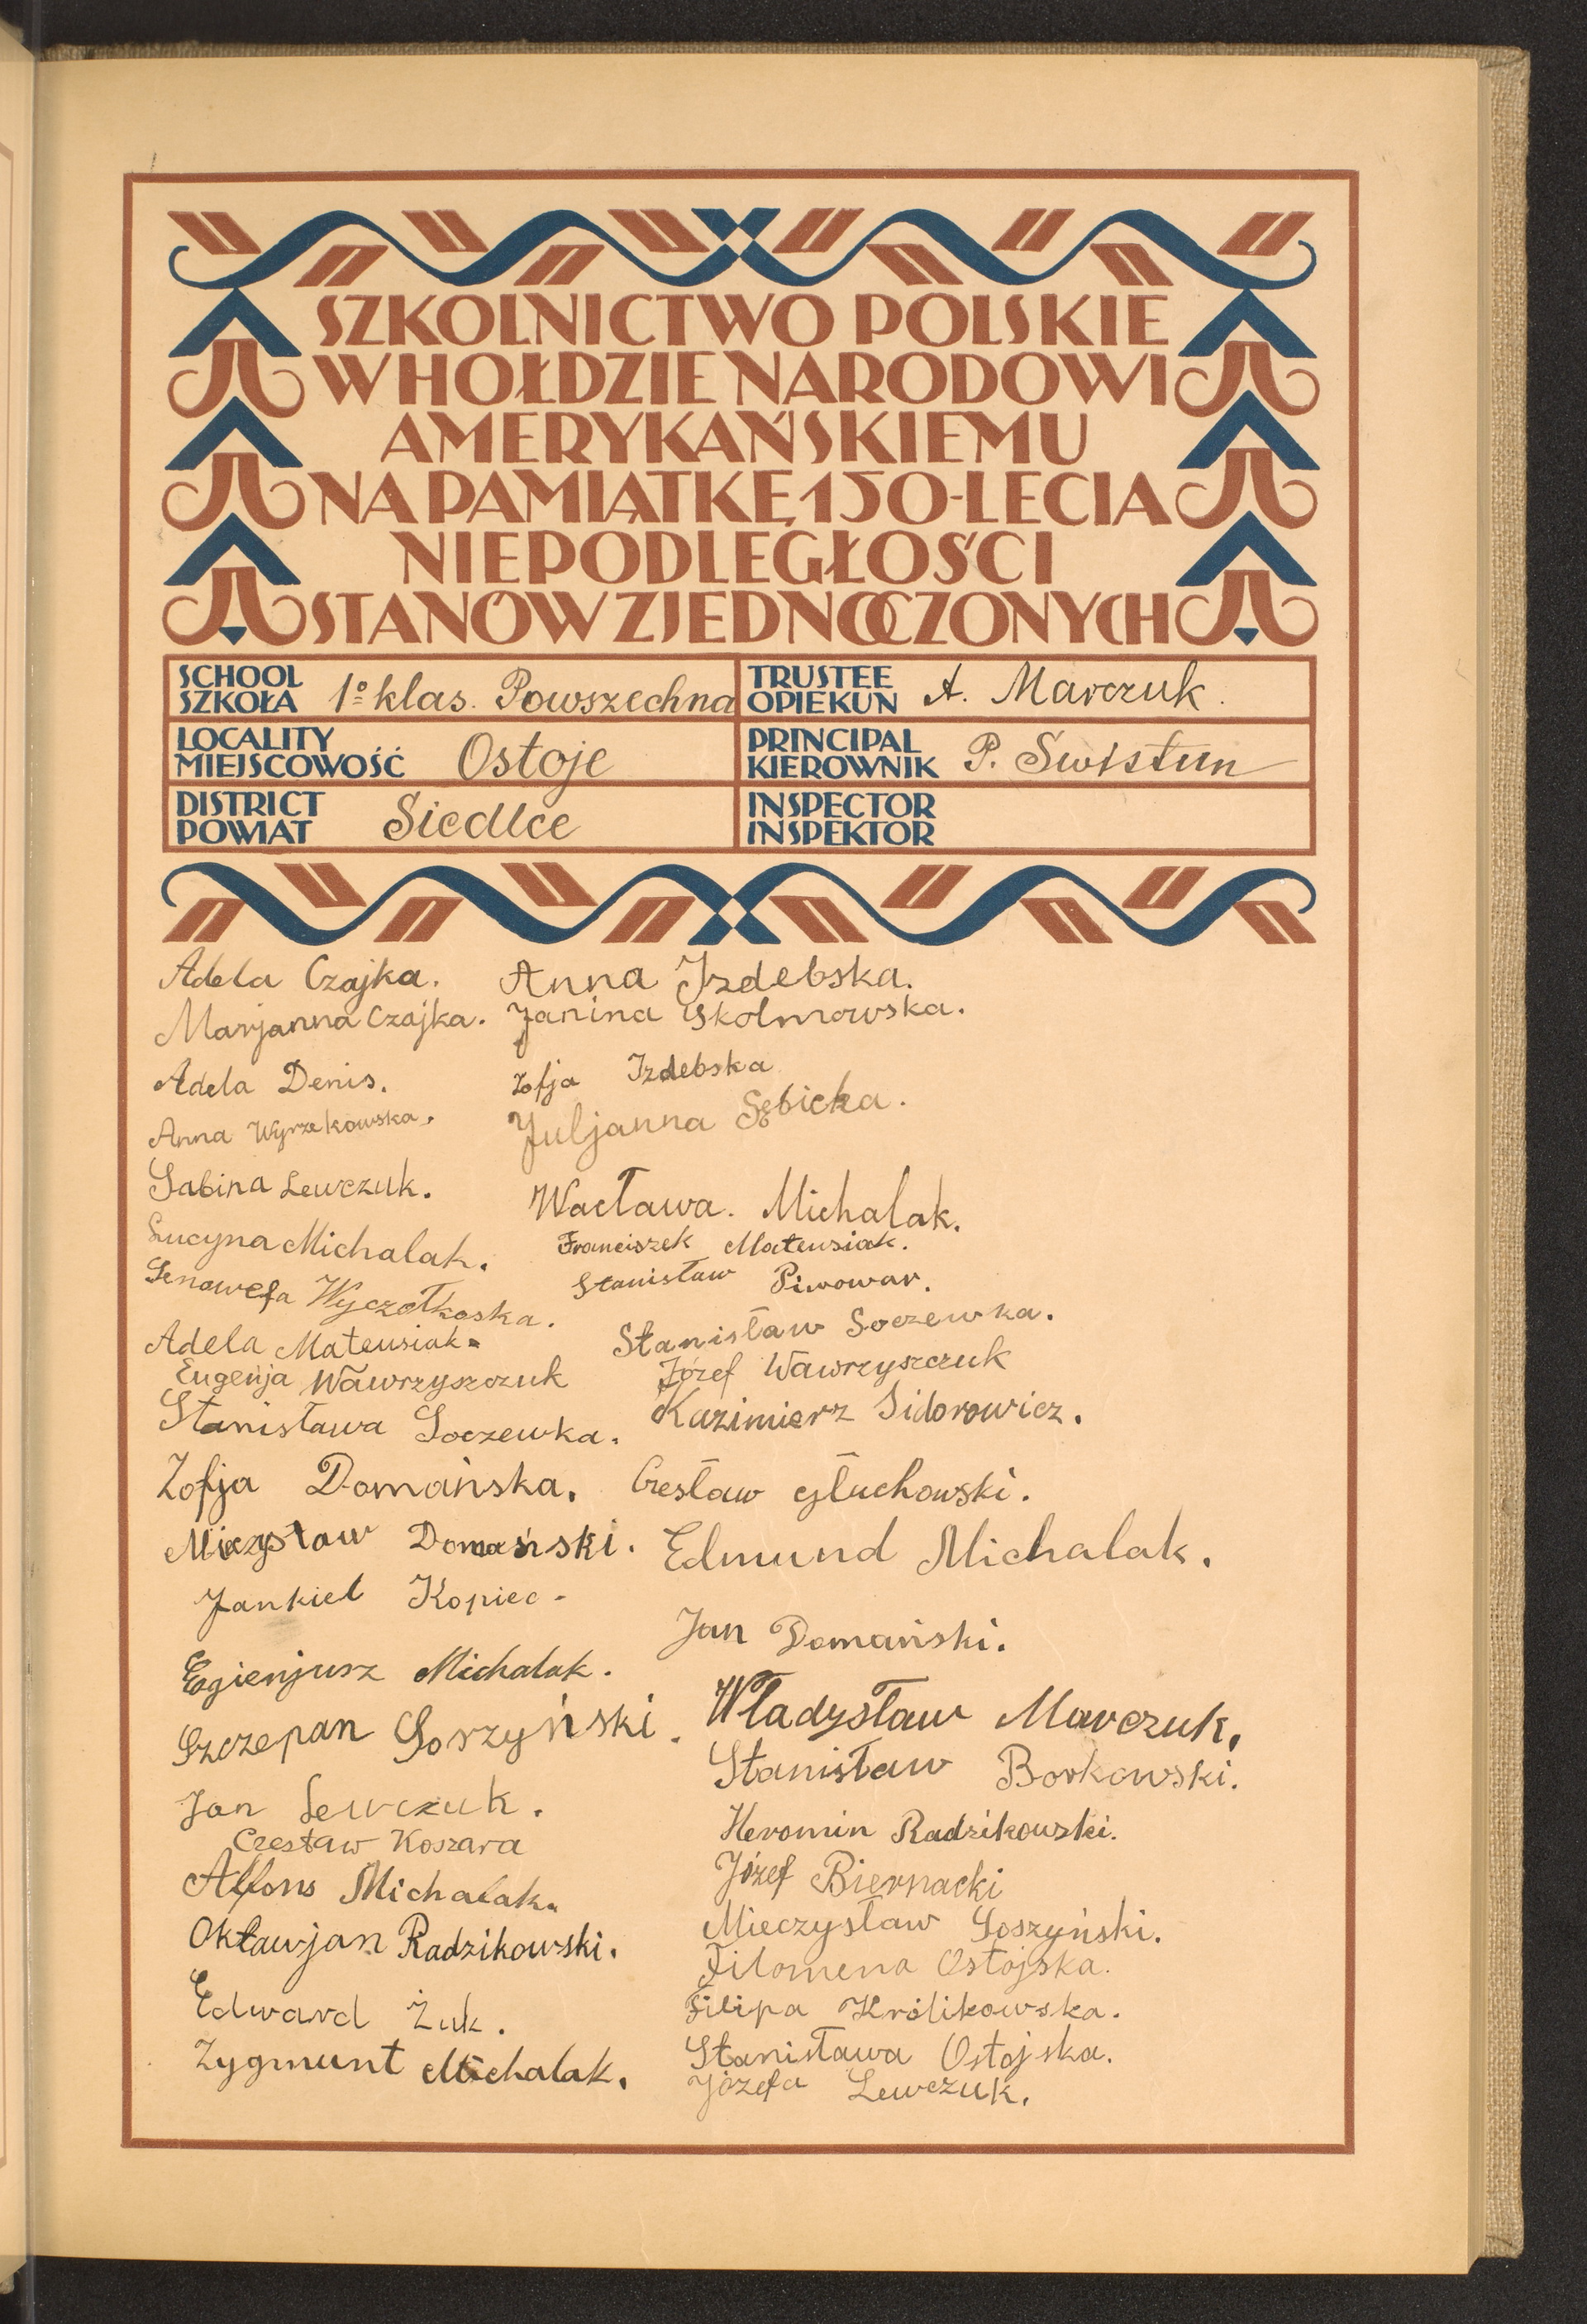 SZKOLNICTWO POLSKIE
W HOŁDZIE NARODOWI
AMERYKAŃSKIEMU
NA PAMIĄTKĘ 150-LECIA
NIEPODLEGŁOŚCI
STANÓW ZJEDNOCZONYCH
SCHOOL
SZKOŁA 1º klas. Powszechna
TRUSTEE
OPIEKUN A. Marczuk.
LOCALITY
MIEJSCOWOŚĆ Ostoje
PRINCIPAL
KIEROWNIK P. Swistun
DISTRICT
POWIAT Siedlce
INSPECTOR
INSPEKTOR
Adela Czajka.
Marjanna Czajka.
Adela Denis.
Anna Wyrzekowska.
Sabina Lewczuk.
Lucyna Michalak.
Genowefa Wyczołkoska.
Adela Mateusiak.
Eugenja Wawrzyszczuk
Stanisława Soczewka.
Zofja Domańska.
Mieczysław Domański.
Jankiel Kopiec.
Egienjusz Michalak.
Szczepan Soszyński.
Jan Lewczuk.
Czesław Koszara
Alfons Michalak.
Oktawjan Radzikowski.
Edward Żuk.
Zygmunt Michalak.
Anna Izdebska.
Janina Skolmowska.
Zofja Izdebska
Juljanna Sębicka.
Wacława. Michalak.
Franciszek Mateusiak.
Stanisław Piwowar.
Stanisław Soczewka.
Józef Wawrzyszczuk
Kazimierz Sidorowicz.
Czesław Głuchowski.
Edmund Michalak.
Jan Domański.
Władysław Marczuk.
Stanisław Borkowski.
Heromin Radzikowski.
Józef Biernacki
Mieczysław Soszyński.
Filomena Ostojska.
Filipa Królikowska.
Stanisława Ostojska.
Józefa Lewczuk.